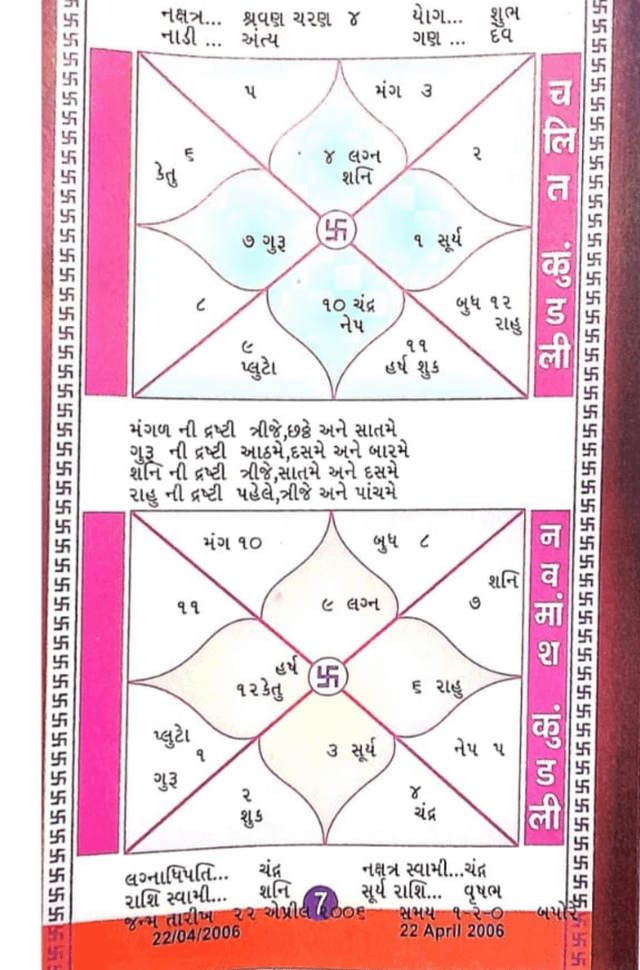 નક્ષત્ર... શ્રવણ ચરણ ૪ યોગ... શુભ
નાડી ... અંત્ય ગણ ... દેવ
चलित कुंडली
૫
મંગ ૩
૬
કેતુ
૪ લગ્ન
શનિ
૨
૭ ગુરૂ
૧ સૂર્ય
૮
૧૦ ચંદ્ર
નેપ
બુધ ૧૨
રાહુ
૯
પ્લુટો
૧૧
હર્ષ શુક
મંગળ ની દ્રષ્ટી ત્રીજે,છઠ્ઠે અને સાતમે
ગુરૂ ની દ્રષ્ટી આઠમે,દસમે અને બારમે
શનિ ની દ્રષ્ટી ત્રીજે,સાતમે અને દસમે
રાહુ ની દ્રષ્ટી પહેલે,ત્રીજે અને પાંચમે
नवमांश कुंडली
મંગ ૧૦
બુધ ૮
૧૧
૯ લગ્ન
શનિ
૭
હર્ષ
૧૨કેતુ
૬ રાહુ
પ્લુટો
૧
ગુરૂ
૩ સૂર્ય
નેપ ૫
૨
શુક
૪
ચંદ્ર
લગ્નાધિપતિ... ચંદ્ર નક્ષત્ર સ્વામી...ચંદ્ર
રાશિ સ્વામી... શનિ સૂર્ય રાશિ... વૃષભ
7
જન્મ તારીખ ૨૨ એપ્રીલ ૨૦૦૬ સમય ૧-૨-૦ બપોરે
22/04/2006 22 April 2006